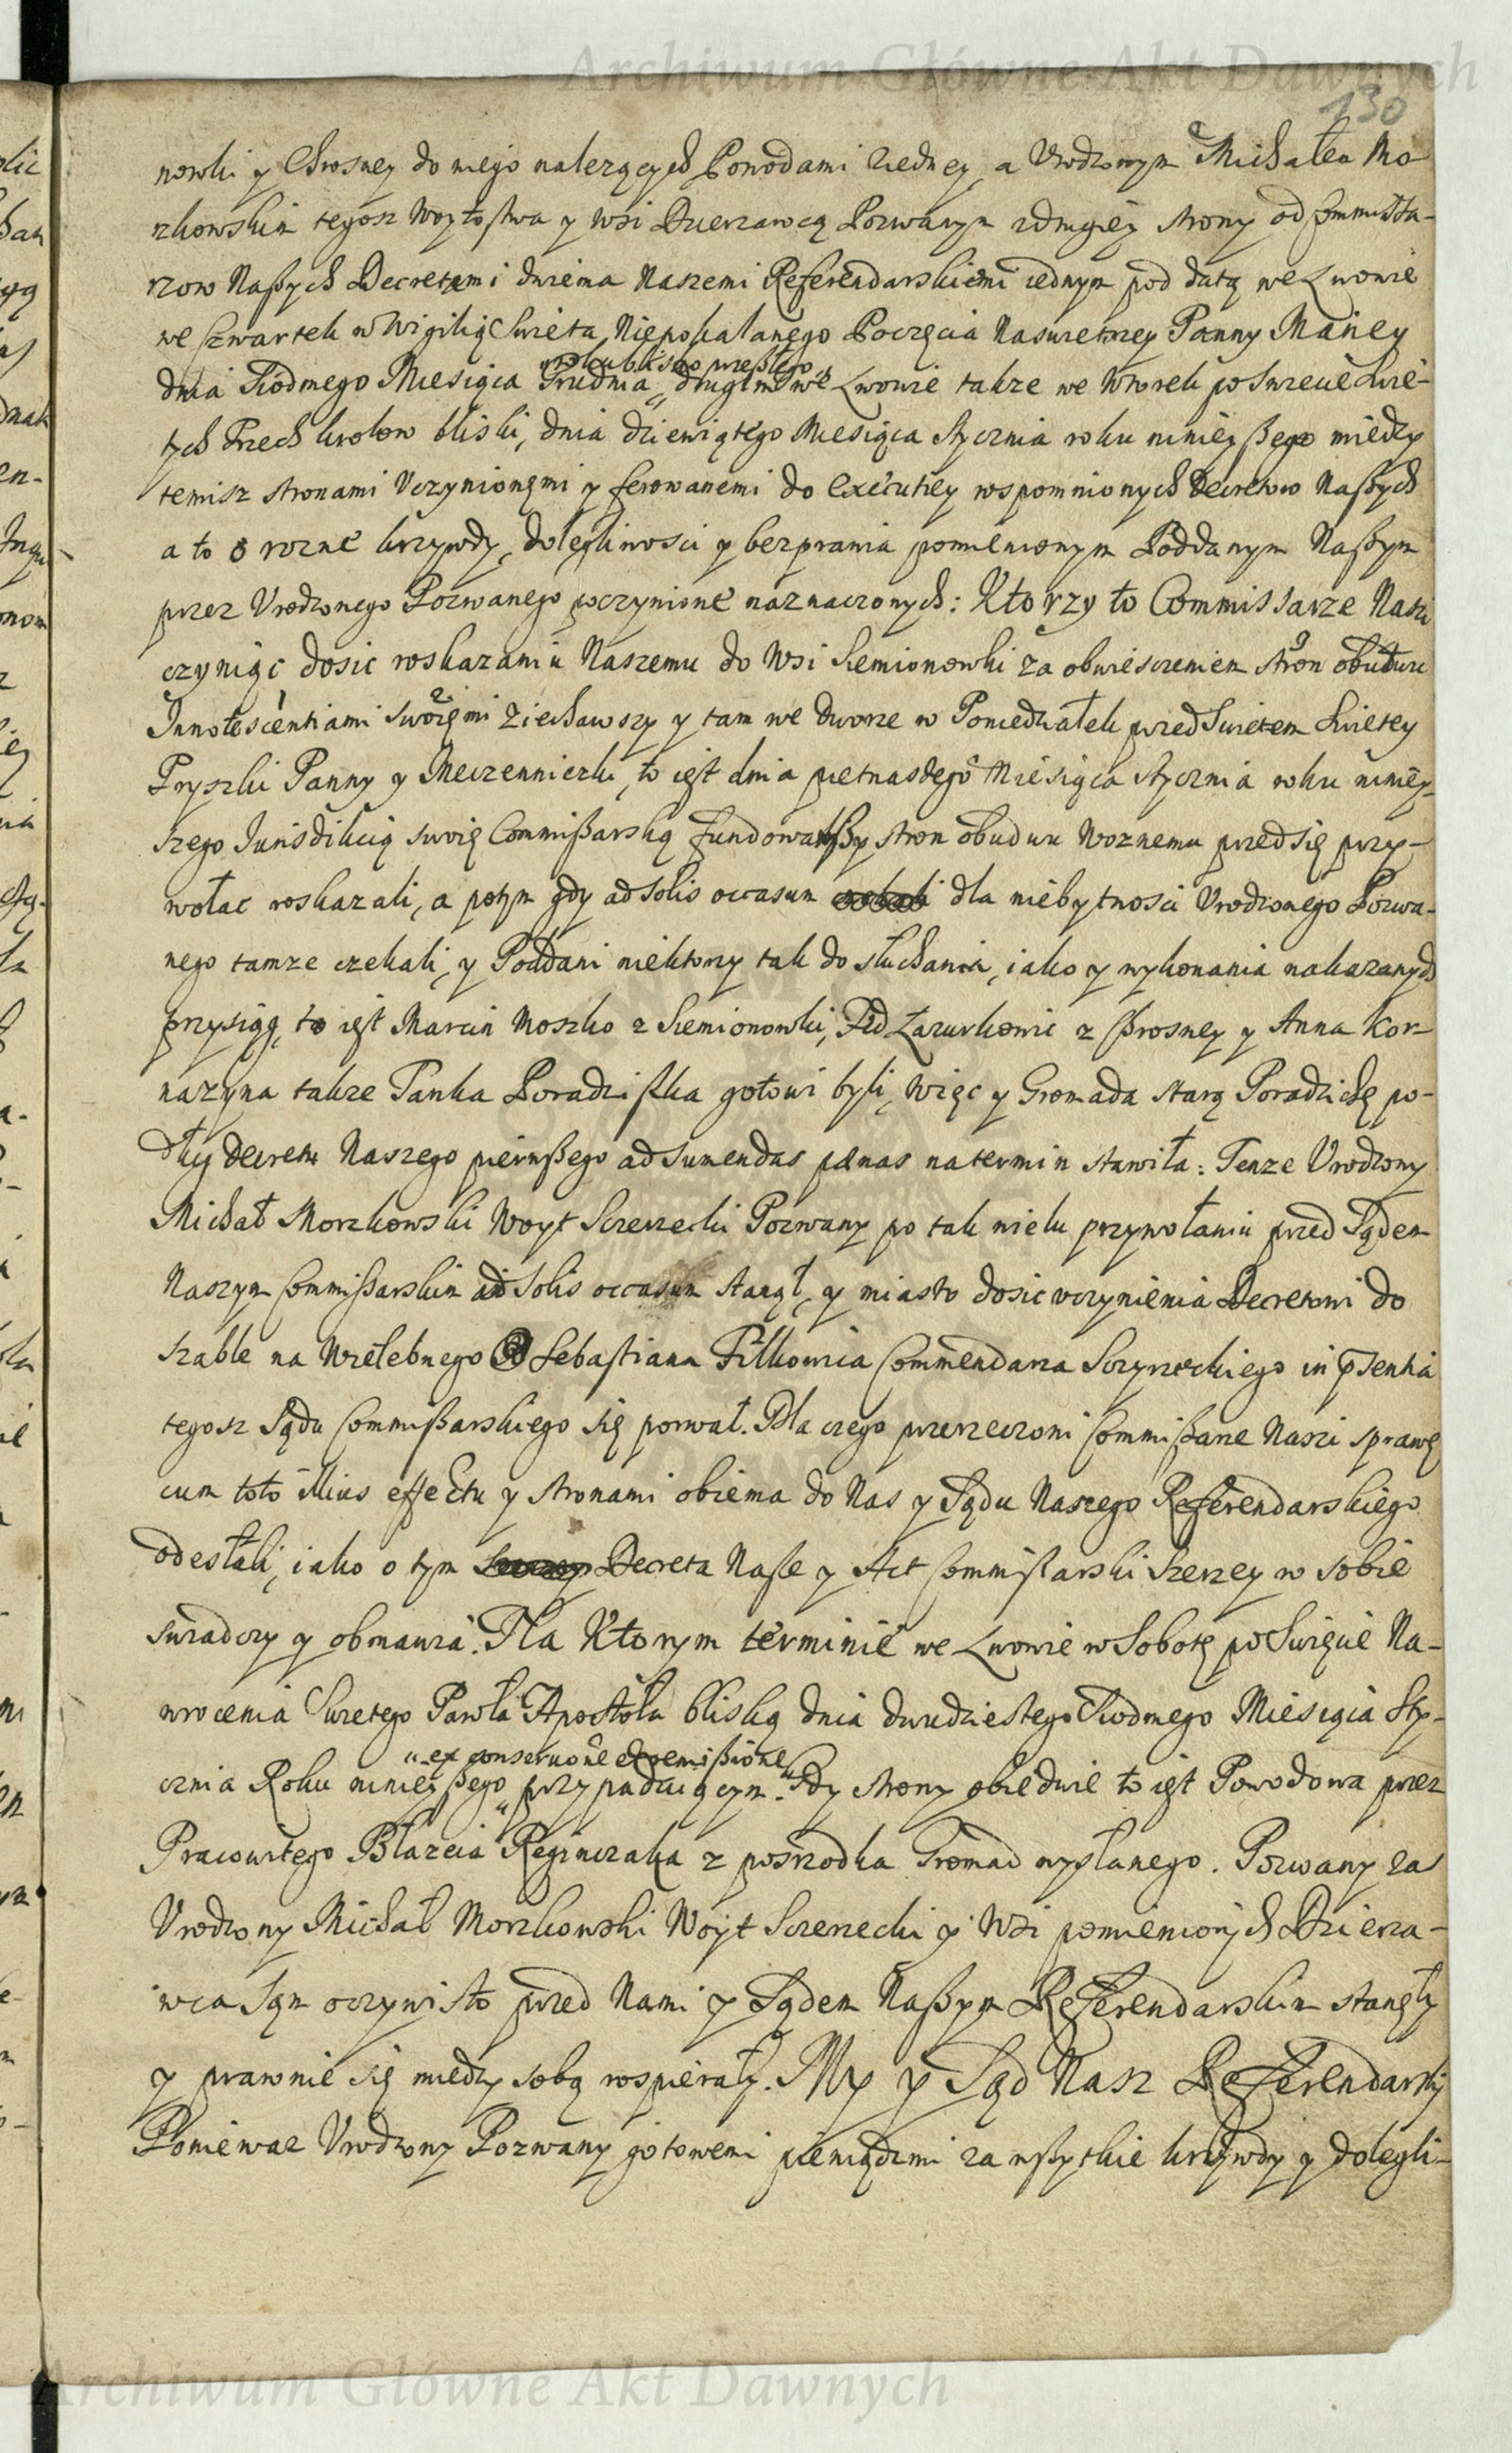 Archiwum Główne Akt Dawnych
130
nowki y Chrosney do niego nalezących Powodami z iedney, a Vrodzonym Michałem Mo-
rzkowskim tegosz Woytostwa y Wsi Dzierzawcą Pozwanym z drugiey strony od Commissa-
rzow Naszych Decretami dwiema Naszemi Referendarskiemi iednym pod datą we Lwowie
we Czwartek w Wigilią Swięta Niepokalanego Poczęcia Naswietszey Panny Mariey
roku blisko przeszłego
dnia Siodmego Miesiąca Grudnia, drugim we Lwowie takze we Wtorek po Swięcie Swię-
tych Trzech Krolow bliski, dnia dziewiątego Miesiąca Stycznia roku ninieyszego między
temisz stronami Vczynionęmi y ferowanemi do Executiey wspomnionych Decretow Naszych
a to o rozne krzywdy, dolegliwosci y bezprawia pomienionym Poddanym Naszym
przez Vrodzonego Pozwanego poczynione naznaczonych: Ktorzy to Commissarze Nasi
czyniąc dosic roskazaniu Naszemu do Wsi Siemionowki za obwiesczeniem stron obudwu
Innotescentiami swoięmi ziechawszy y tam we dworze w Poniedziałek przed Swiętem Swietey
Pryszki Panny y Męczenniczki, to iest dnia pietnastego Miesiąca Stycznia roku niniey-
szego Iurisdikcią swoię Commissarską fundowawszy stron obudwu Woznemu przed się przy-
wołac roskazali, a potym gdy ad solis occasum dla niebytnosci Vrodzonego Pozwa-
nego tamze czekali, y Poddani niektorzy tak do słuchania, iako y wykonania nakazanych
przysiąg, to iest Marcin Moszko z Siemionowki, Fed Lazurkowic z Chrosney y Anna Kor-
nazyna takze Panka Poradziszka gotowi byli, więc y Gromada starą Poradzichę po-
dług decretu Naszego pierwszego ad sumendas pænas na termin stawiła: Tenze Vrodzony
Michał Morzkowski Woyt Sczerzecki Pozwany po tak wielu przywołaniu przed Sądem
Naszym Commissarskim ad solis occasum stanął, y miasto dosic vczynienia Decretowi do
szable na Wielebnego Sebastiana Filkowica Commendarza Sczyrzeckiego in pſentia
tegosz Sądu Commissarskiego się porwał. Dla czego przerzeczoni Commissarze Naszi sprawę
cum toto illius effectu y stronami obiema do Nas y Sądu Naszego Referendarskiego
odesłali, iako o tym Decreta Nasze y Act Commissarski szerzey w sobie
swiadczy y obmawia. Na Ktorym terminie we Lwowie w Sobotę po Swięcie Na-
wrocenia Swietego Pawła Apostoła bliską dnia dwudziestego Siodmego Miesiąca Sty-
ex conservatione et remissione
cznia Roku ninieyszego przypadaiącym. Gdy strony obiedwie to iest Powodowa przez
Pracowitego Błazeia Reginczaka z posrzodka Gromad wysłanego. Pozwany zas
Vrodzony Michał Morzkowski Woyt Sczerzecki y Wsi pomienionych Dzierza-
wca sąm oczywisto przed Nami y Sądem Naszym Referendarskim stanęły
y prawnie się między sobą wspierały. My y Sąd Nasz Referendarski
Poniewaz Vrodzony Pozwany gotowemi pieniądzmi za wszytkie krzywdy y dolegli-
Archiwum Główne Akt Dawnych